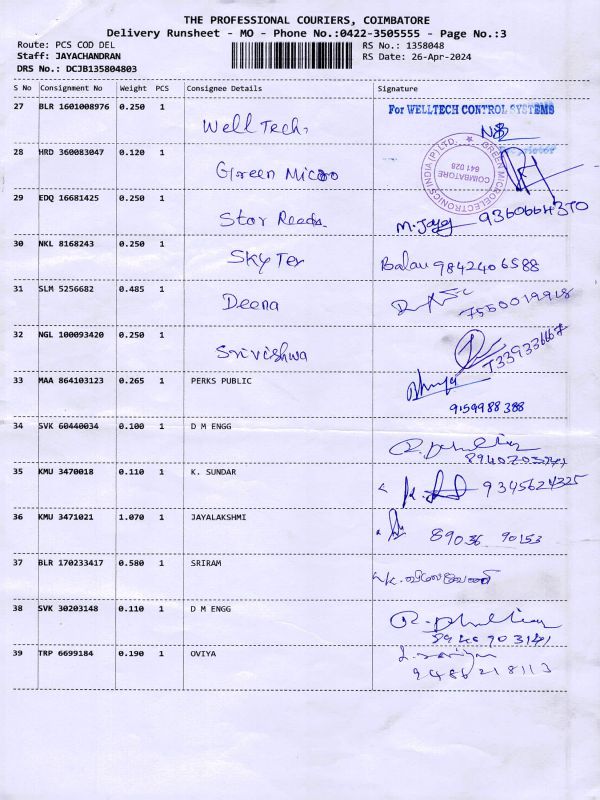 THE PROFESSIONAL COURIERS, COIMBATORE
Delivery Runsheet - MO - Phone No.:0422-3505555 - Page No.:3
Route: PCS COD DEL RS No.: 1358048
Staff: JAYACHANDRAN RS Date: 26-Apr-2024
DRS No.: DCJB135804803
S No Consignment No Weight PCS Consignee Details Signature
27 BLR 1601008976 0.250 1 Well Tech. For WELLTECH CONTROL SYSTEMS
Proprietor
28 HRD 360083047 0.120 1 Green Micro GREEN MICROELECTRONICS INDIA (P) LTD. COIMBATORE 641 028
29 EDQ 16681425 0.250 1 Star Reeds. M. Jaya 9360664370
30 NKL 8168243 0.250 1 Sky Tex Balan 9842406588
31 SLM 5256682 0.485 1 Deena 7550019918
32 NGL 100093420 0.250 1 Srivishwa
33 MAA 864103123 0.265 1 PERKS PUBLIC
9159988388
34 SVK 60440034 0.100 1 D M ENGG
35 KMU 3470018 0.110 1 K. SUNDAR 9345624325
36 KMU 3471021 1.070 1 JAYALAKSHMI 89036 90153
37 BLR 170233417 0.580 1 SRIRAM
38 SVK 30203148 0.110 1 D M ENGG
39 TRP 6699184 0.190 1 OVIYA
9486218113